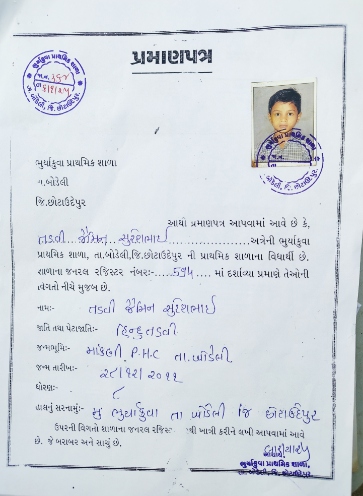 પ્રમાણપત્ર
ભુર્યાકુવા પ્રાથમિક શાળા
તા.બોડેલી
જિ.છોટાઉદેપુર
આથી પ્રમાણપત્ર આપવામાં આવે છે કે,
તડવી જૈમિન સુરેશભાઈ અત્રેની ભુર્યાકુવા
પ્રાથમિક શાળા, તા.બોડેલી,જિ.છોટાઉદેપુર ની પ્રાથમિક શાળાના વિદ્યાર્થી છે.
શાળાના જનરલ રજિસ્ટર નંબરઃ- 594 માં દર્શાવ્યા પ્રમાણે તેઓની
વિગતો નીચે મુજબ છે.
નામઃ- તડવી જૈમિન સુરેશભાઈ
જાતિ તથા પેટાજાતિઃ- હિન્દુ તડવી
જન્મભૂમિઃ- P.H.C તા. બોડેલી
જન્મ તારીખઃ- ૨૮/૧૨/૨૦૧૧
ધોરણઃ- ૮
હાલનું સરનામંુઃ- મુ ભુર્યાકુવા તા બોડેલી જિ છોટાઉદેપુર
ઉપરની વિગતો શાળાના જનરલ ખાત્રી કરીને લખી આપવામાં આવે
છે. જે બરાબર અને સાચું છે.
ભુર્યાકુવા પ્રાથમિક શાળા,
તા. બોડેલી, જિ. છોટાઉદેપુર